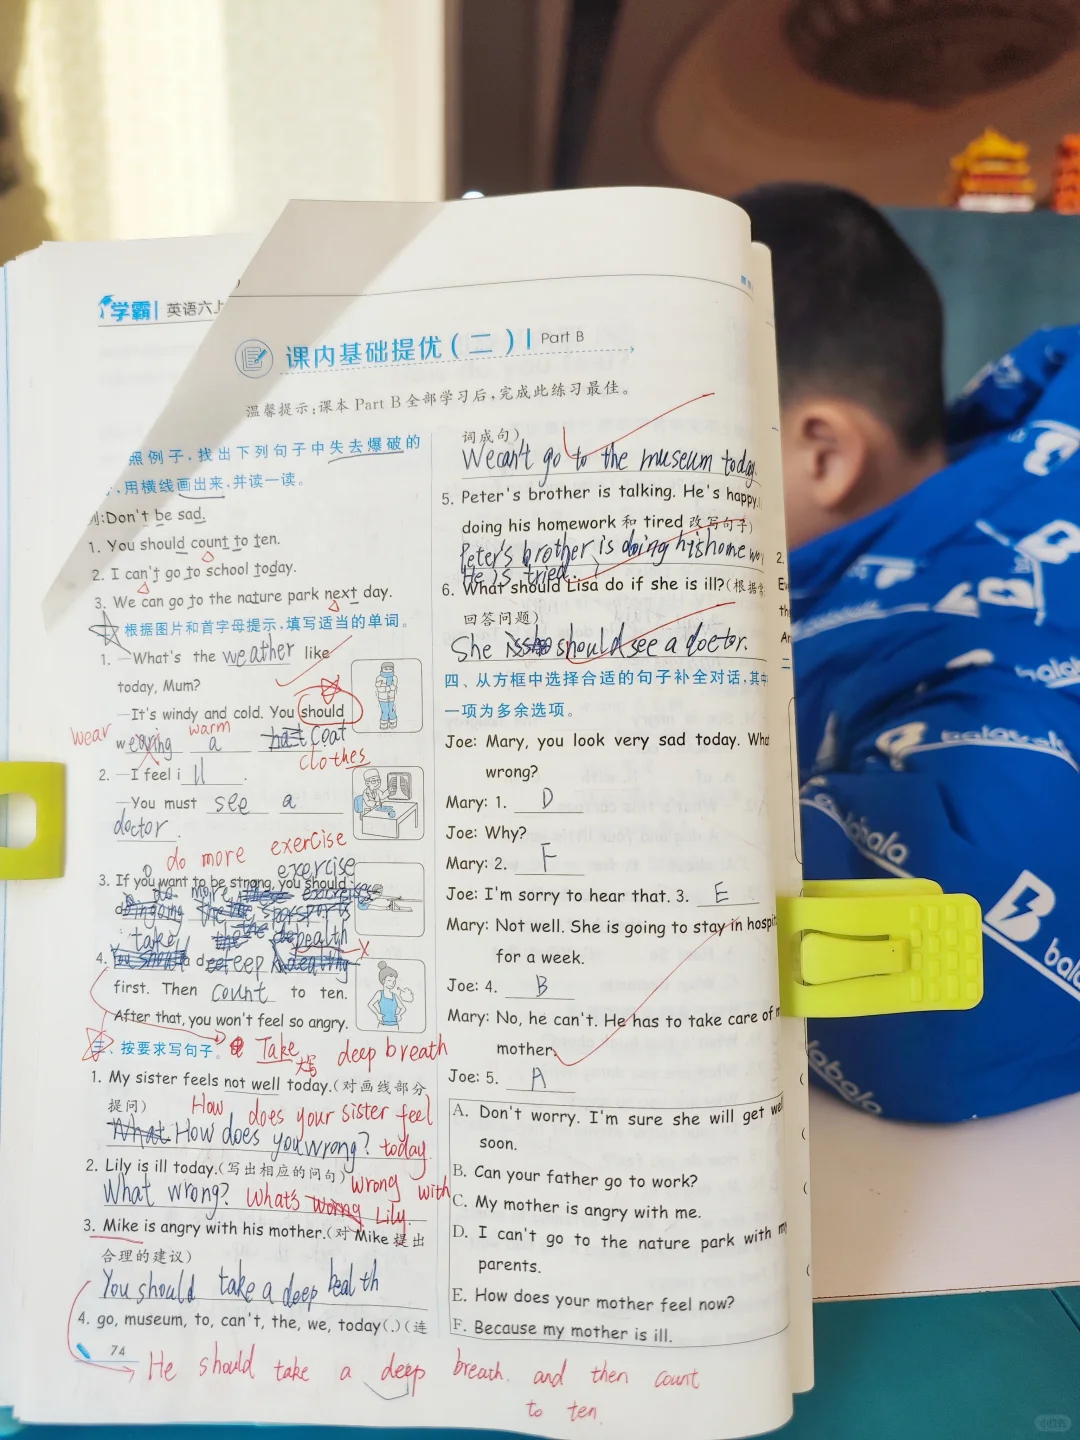 学霸 英语六上
课内基础提优(二) Part B
温馨提示:课本 Part B 全部学习后,完成此练习最佳。
照例子,找出下列句子中失去爆破的
,用横线画出来,并读一读。
例:Don't be sad.
1. You should count to ten.
2. I can't go to school today.
3. We can go to the nature park next day.
根据图片和首字母提示,填写适当的单词。
1. —What's the weather like
today, Mum?
—It's windy and cold. You should
wear warm
wearing a hat coat
clothes
2. —I feel ill.
—You must see a
doctor.
do more exercise
exercise
3. If you want to be strong, you should
do more exercises
take health
4. deep
first. Then count to ten.
After that, you won't feel so angry.
三、按要求写句子。 Take deep breath
大写
1. My sister feels not well today.(对画线部分
提问) How does your sister feel
What How does you wrong? today
2. Lily is ill today.(写出相应的问句) wrong with
What wrong? What's worng Lily.
3. Mike is angry with his mother.(对 Mike 提出
合理的建议)
You should take a deep health
4. go, museum, to, can't, the, we, today(.)(连
74
He should take a deep breath. and then count
to ten.
词成句)
We can't go to the museum today.
5. Peter's brother is talking. He's happy.(
doing his homework 和 tired 改写句子)
Peter's brother is doing his home wo
He is tried.
6. What should Lisa do if she is ill?(根据
回答问题)
She should see a doctor.
四、从方框中选择合适的句子补全对话,其中
一项为多余选项。
Joe: Mary, you look very sad today. What
wrong?
Mary: 1. D
Joe: Why?
Mary: 2. F
Joe: I'm sorry to hear that. 3. E
Mary: Not well. She is going to stay in hospi
for a week.
Joe: 4. B
Mary: No, he can't. He has to take care of m
mother.
Joe: 5. A
A. Don't worry. I'm sure she will get well
soon.
B. Can your father go to work?
C. My mother is angry with me.
D. I can't go to the nature park with my
parents.
E. How does your mother feel now?
F. Because my mother is ill.
balabala
balabala
balabala
balabala
小红书